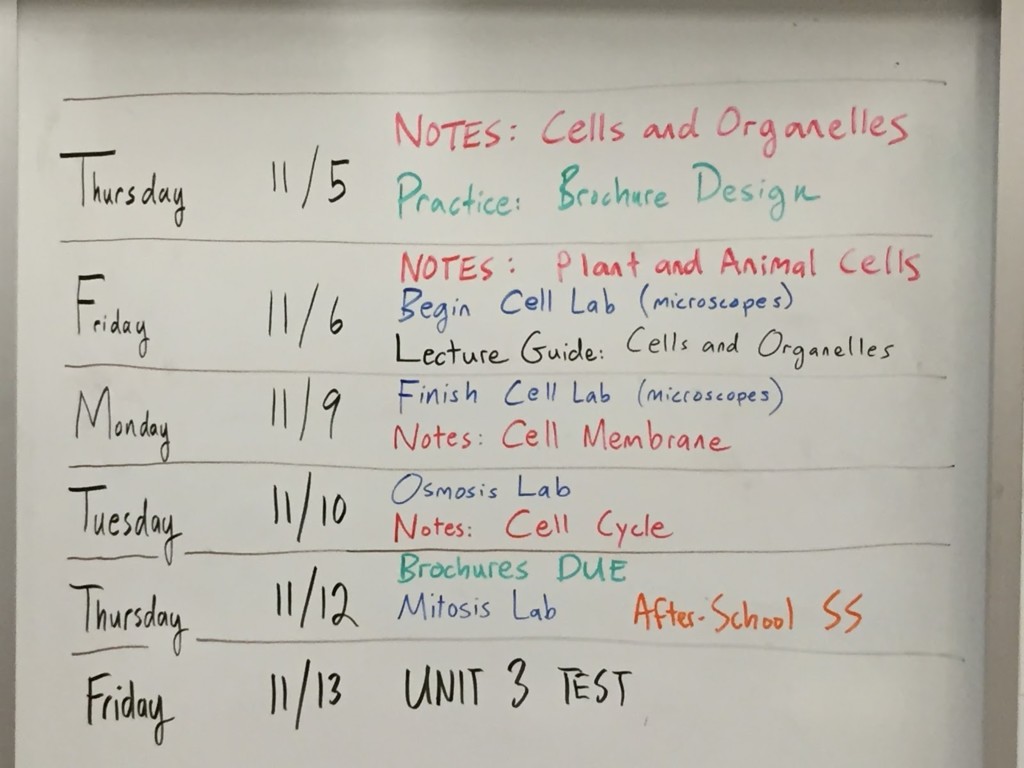 Thursday 11/5 NOTES: Cells and Organelles
Practice: Brochure Design
Friday 11/6 NOTES: Plant and Animal Cells
Begin Cell Lab (microscopes)
Lecture Guide: Cells and Organelles
Monday 11/9 Finish Cell Lab (microscopes)
Notes: Cell Membrane
Tuesday 11/10 Osmosis Lab
Notes: Cell Cycle
Thursday 11/12 Brochures DUE
Mitosis Lab After-School SS
Friday 11/13 UNIT 3 TEST